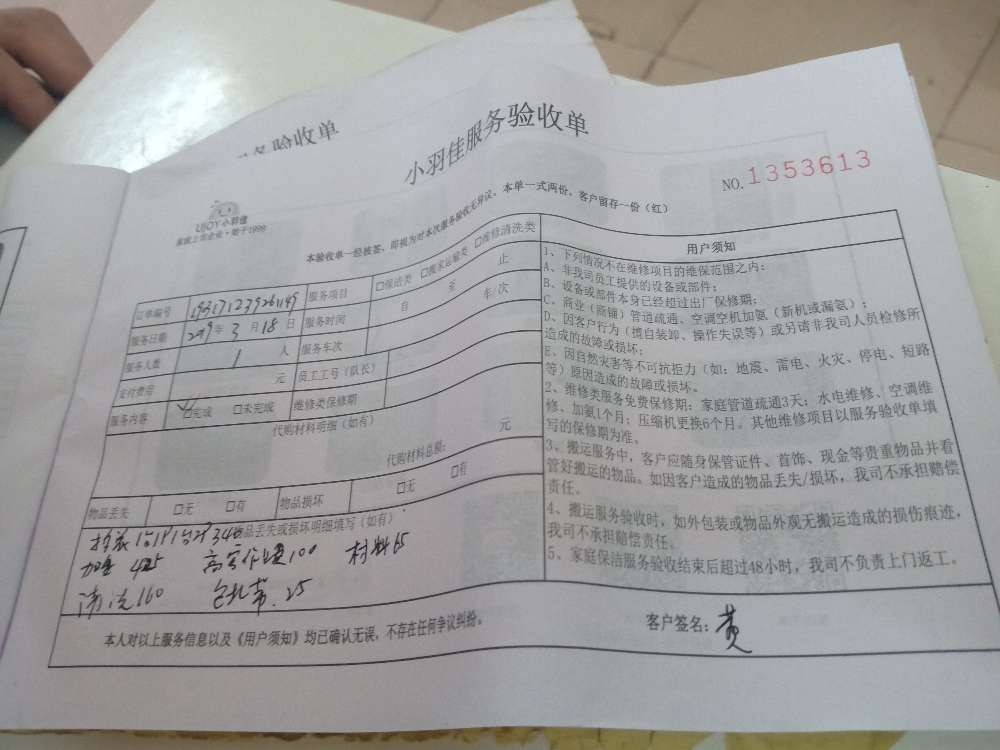 验收单
小羽佳服务验收单
NO.1353613
UJOY小羽佳
家政上市企业·始于1999
本验收单一经核签,即视为对本次服务验收无异议。本单一式两份,客户留存一份(红)
订单编号
服务项目 □保洁类 □搬家运输类 □维修清洗类
服务日期 年3月18日 服务时间 自 至 止
服务人数 1 人 服务车次 车/次
支付费用 元 员工工号(队长)
服务内容 ☑完成 □未完成 维修类保修期
代购材料明细(如有)
代购材料总额: 元
物品丢失 □无 □有 物品损坏 □无 □有
物品丢失或损坏明细填写(如有)
高空作业费100 材料65
清洗160 包扎带.25
本人对以上服务信息以及《用户须知》均已确认无误,不存在任何争议纠纷。
用户须知
1、下列情况不在维修项目的维保范围之内:
A、非我司员工提供的设备或部件;
B、设备或部件本身已经超过出厂保修期;
C、商业(商铺)管道疏通、空调空机加氨(新机或漏氨);
D、因客户行为(擅自装卸、操作失误等)或另请非我司人员检修所
造成的故障或损坏;
E、因自然灾害等不可抗拒力(如:地震、雷电、火灾、停电、短路
等)原因造成的故障或损坏。
2、维修类服务免费保修期:家庭管道疏通3天;水电维修、空调维
修、加氨1个月;压缩机更换6个月。其他维修项目以服务验收单填
写的保修期为准。
3、搬运服务中,客户应随身保管证件、首饰、现金等贵重物品并看
管好搬运的物品。如因客户造成的物品丢失/损坏,我司不承担赔偿
责任。
4、搬运服务验收时,如外包装或物品外观无搬运造成的损伤痕迹,
我司不承担赔偿责任。
5、家庭保洁服务验收结束后超过48小时,我司不负责上门返工。
客户签名:黄